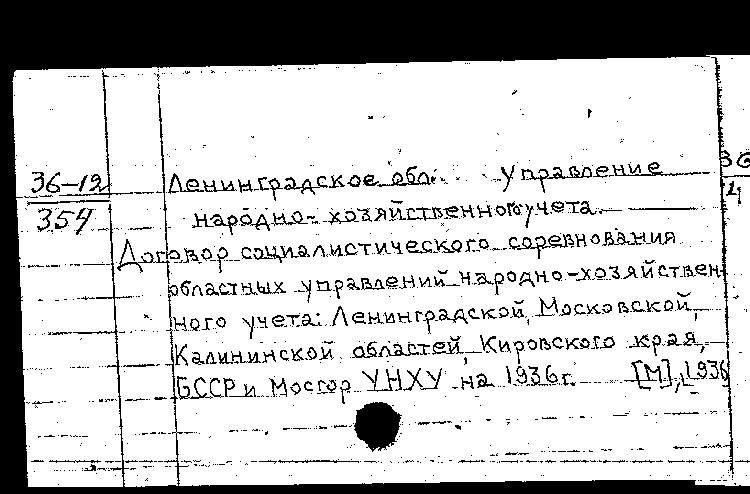 36-12
354
Ленинградское обл. Управление
народно-хозяйственного учета.
Договор социалистического соревнования
областных управлений народно-хозяйствен-
ного учета: Ленинградской, Московской,
Калининской областей, Кировского края,
БССР и Мосгор УНХУ на 1936 г. [М], 1936
36